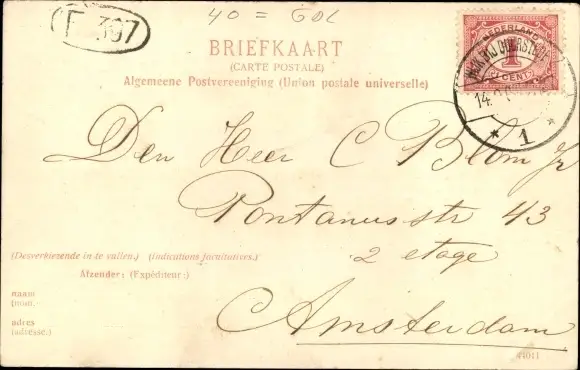 40 = GDL
F 397
BRIEFKAART
(CARTE POSTALE)
Algemeene Postvereeniging (Union postale universelle)
NEDERLAND
1
CENT
WIJK BIJ DUURSTEDE
14.
* 1 *
Den Heer C Blom Jr
Pontanusstr 43
2 etage
Amsterdam
(Desverkiezende in te vullen.) (Indications facultatives.)
Afzender: (Expéditeur:)
naam
(nom).
adres
(adresse.)